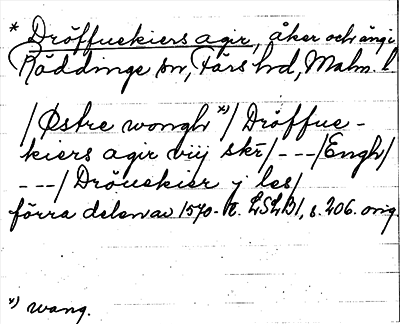 * Dröffuekiers agir, åker och äng i
Röddinge sn, Färs hd, Malm. l.
/Østre wongh *)/ Dröffue-
kiers agir viij skr/ ---/Engh/
---/ Dröuekier j les/
förra delen av 1570-t. LSLB1, s. 206. orig.
*) wang.